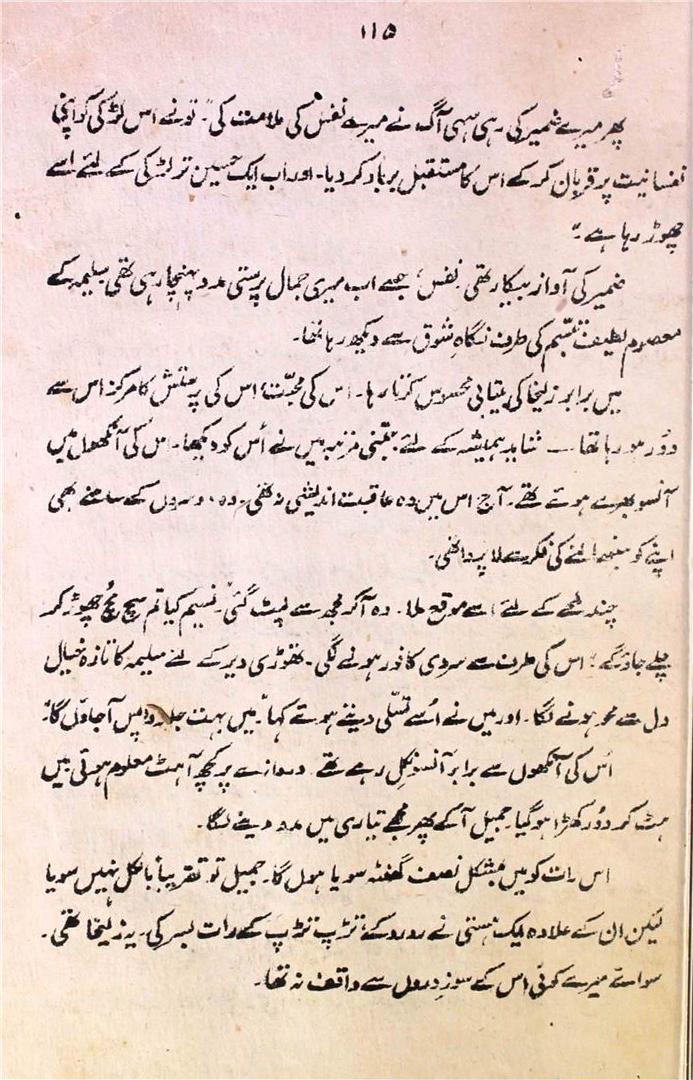 ۱۱۵
پھر میرے ضمیر کی رہی سہی آگ نے میرے نفس کی ملامت کی۔ "تو نے اس لڑکی کو اپنی
نفسانیت پر قربان کر کے اس کا مستقبل برباد کر دیا۔ اور اب ایک حسین تر لڑکی کے لئے اسے
چھوڑ رہا ہے۔"
ضمیر کی آواز بیکار تھی نفس، جسے اب میری جمال پرستی مدد پہنچا رہی تھی سلیمہ کے
معصوم لطیف تبسّم کی طرف نگاہِ شوق سے دیکھ رہا تھا۔
میں برابر زلیخا کی بیتابی محسوس کرتا رہا۔ اس کی محبّت، اس کی پرستش کا مرکز اس سے
دُور ہو رہا تھا — شاید ہمیشہ کے لئے جتنی مرتبہ میں نے اُس کو دیکھا۔ اس کی آنکھوں میں
آنسو بھرے ہوئے تھے۔ آج اس میں وہ عاقبت اندیشی نہ تھی۔ وہ دوسروں کے سامنے بھی
اپنے کو سنبھالنے کی فکر سے لا پروا تھی۔
چند لمحے کے لئے اسے موقع ملا۔ وہ آ کر مجھ سے لپٹ گئی "نسیم کیا تم سچ مچ چھوڑ کر
چلے جاؤ گے؟" اس کی طرف سے سردی کافور ہونے لگی۔ تھوڑی دیر کے لئے سلیمہ کا تازہ خیال
دل سے محو ہونے لگا۔ اور میں نے اُسے تسلّی دیتے ہوئے کہا "میں بہت جلد واپس آ جاؤں گا"
اُس کی آنکھوں سے برابر آنسو نکل رہے تھے۔ دروازے پر کچھ آہٹ معلوم ہوئی میں
ہٹ کر دُور کھڑا ہو گیا۔ جمیل آ کے پھر مجھے تیاری میں مدد دینے لگا۔
اس رات کو میں بمشکل نصف گھنٹہ سویا ہوں گا۔ جمیل تو تقریباً بالکل نہیں سویا
لیکن ان کے علاوہ ایک ہستی نے رو رو کے، تڑپ تڑپ کے رات بسر کی۔ یہ زلیخا تھی۔
سوائے میرے کوئی اس کے سوزِ دروں سے واقف نہ تھا۔